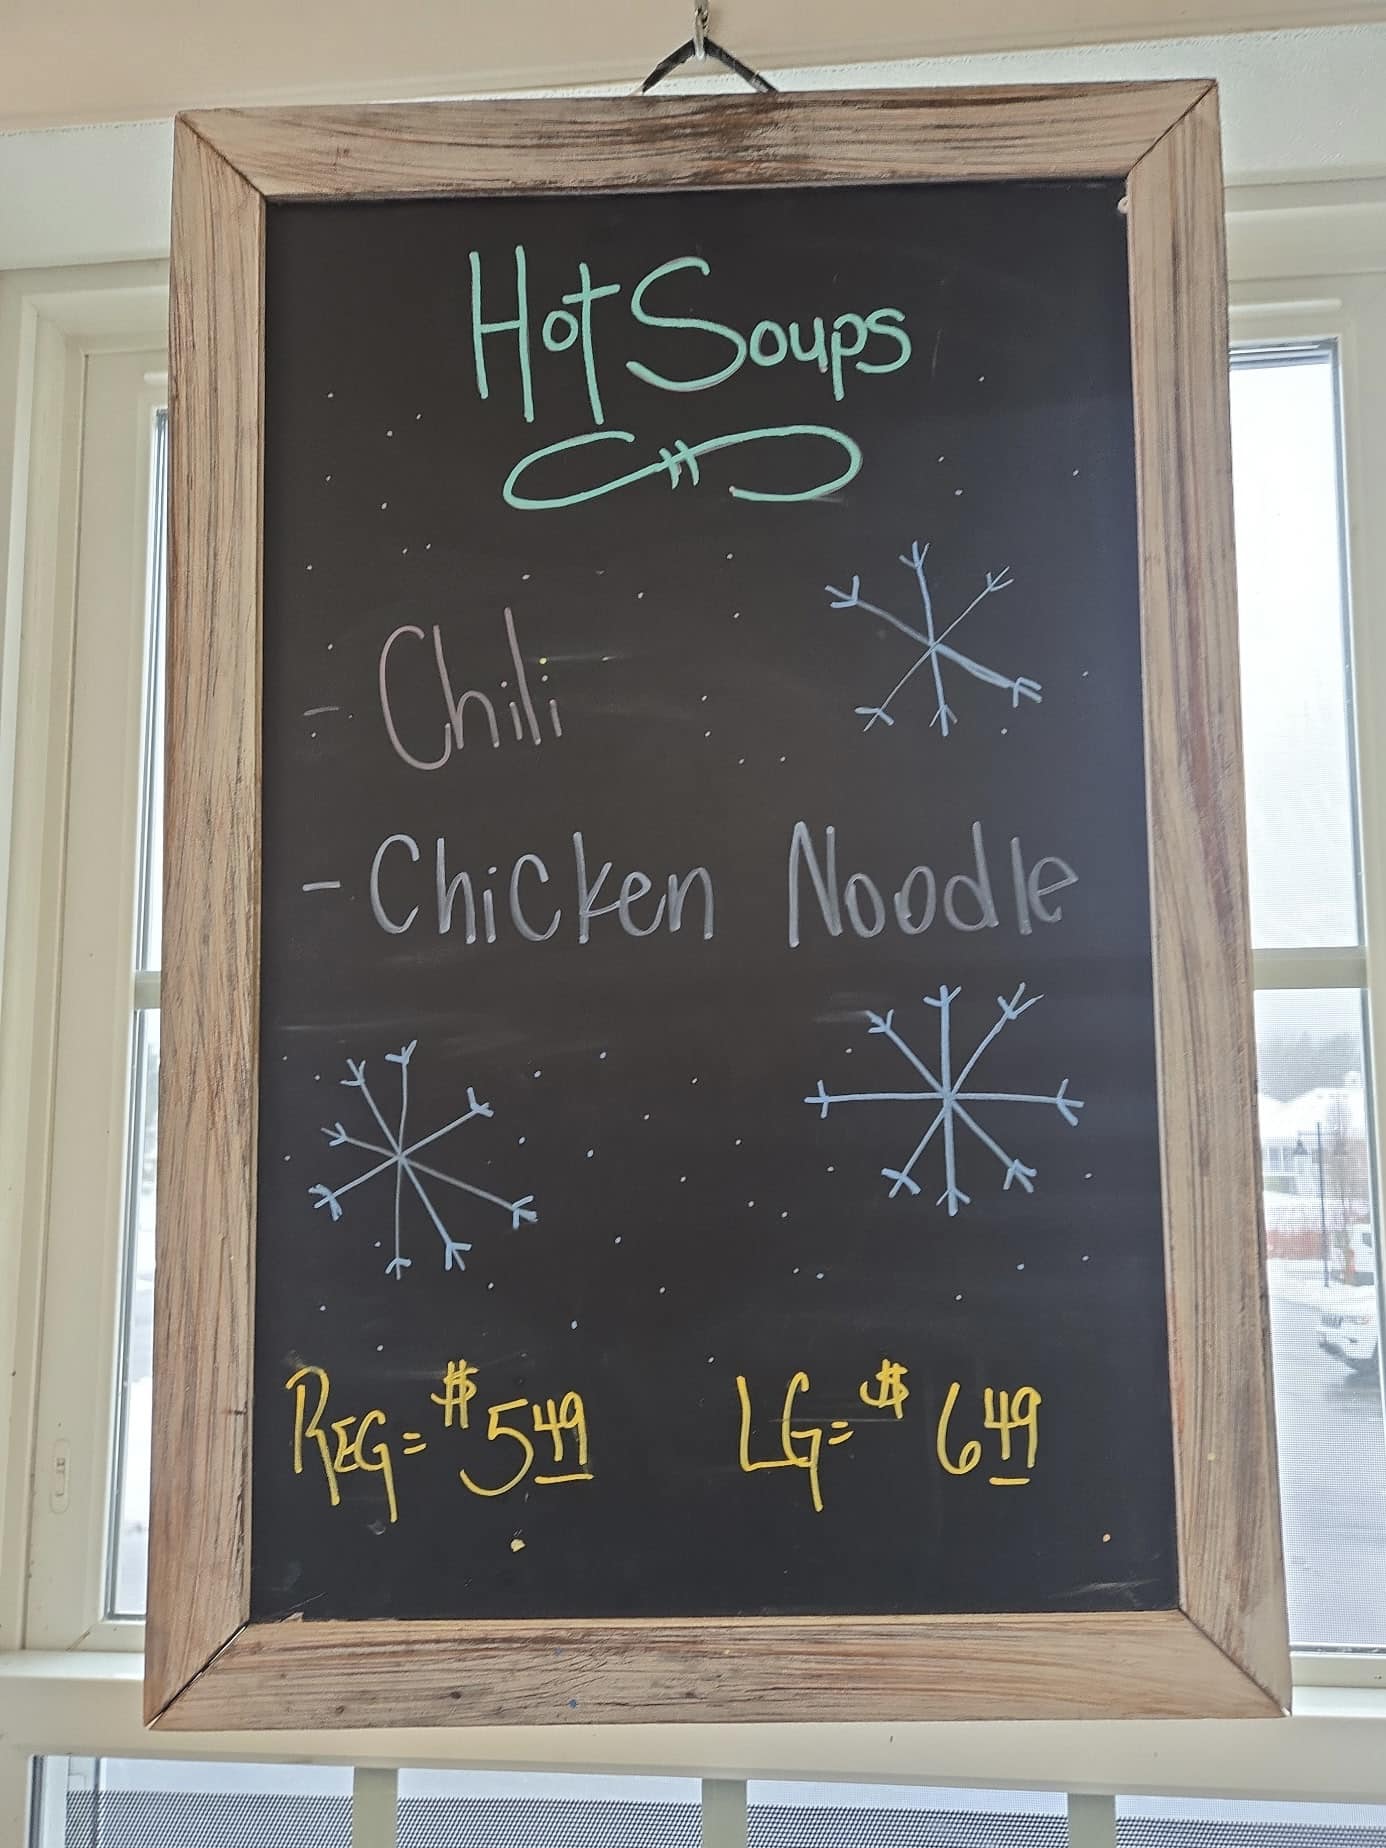 Hot Soups
- Chili
- Chicken Noodle
REG = $5 49 LG = $6 49